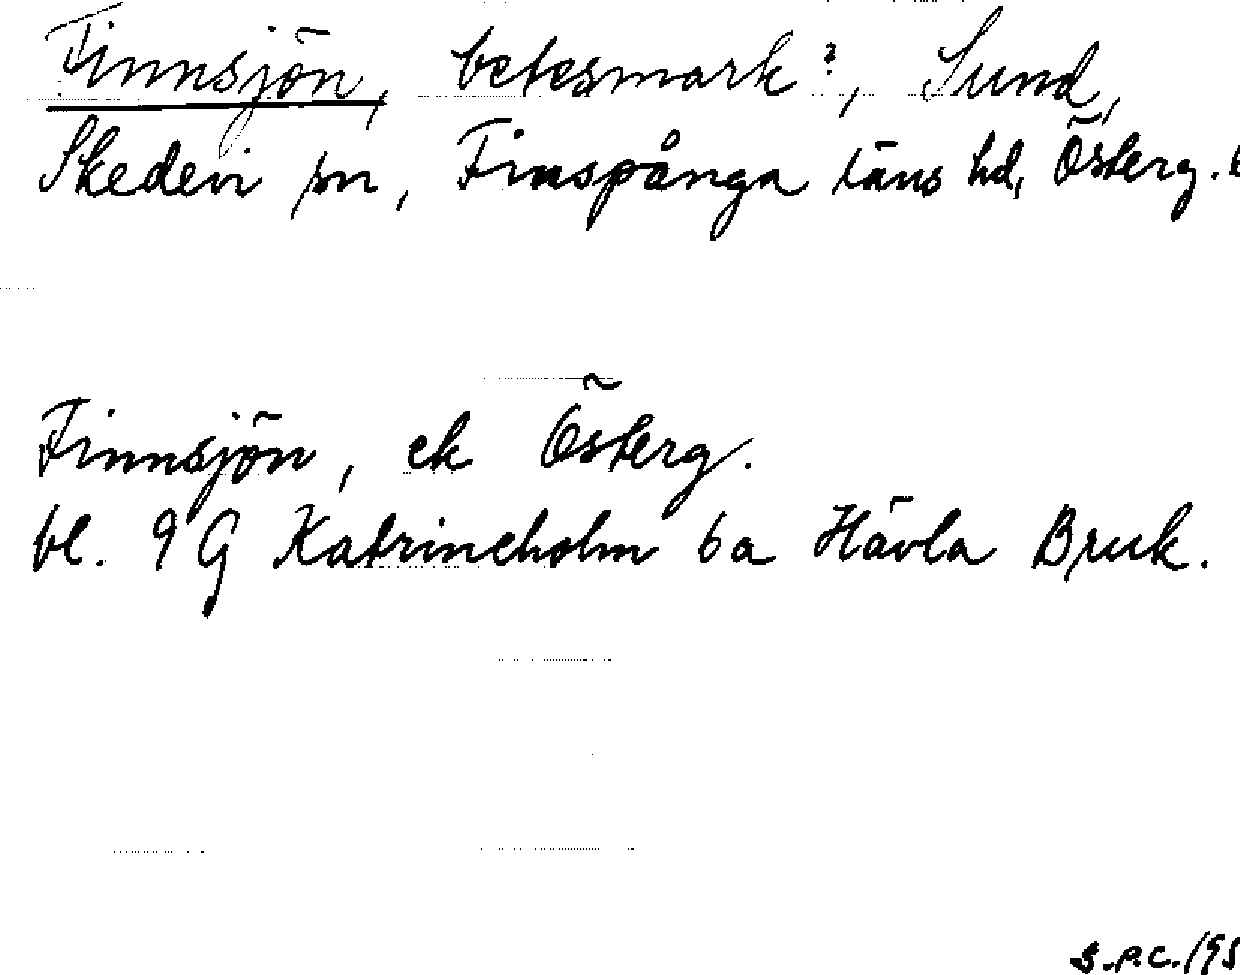 Finnsjön, betesmark?, Sund,
Skedevi sn, Finspånga läns hd, Österg.
Finnsjön, ek Österg.
bl. 9G Katrineholm 6a Hävla Bruk.
S.P.C./95